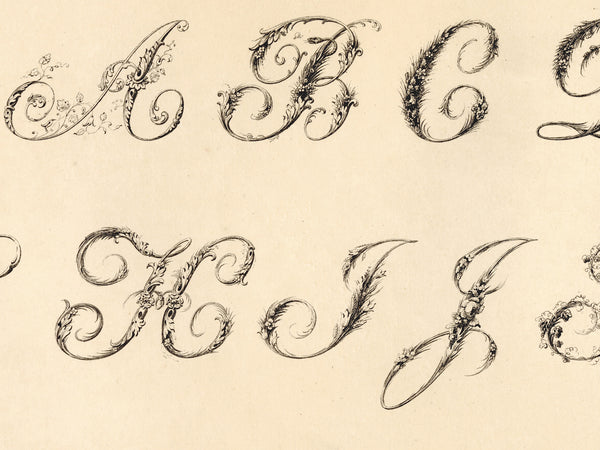 A B C
H I J